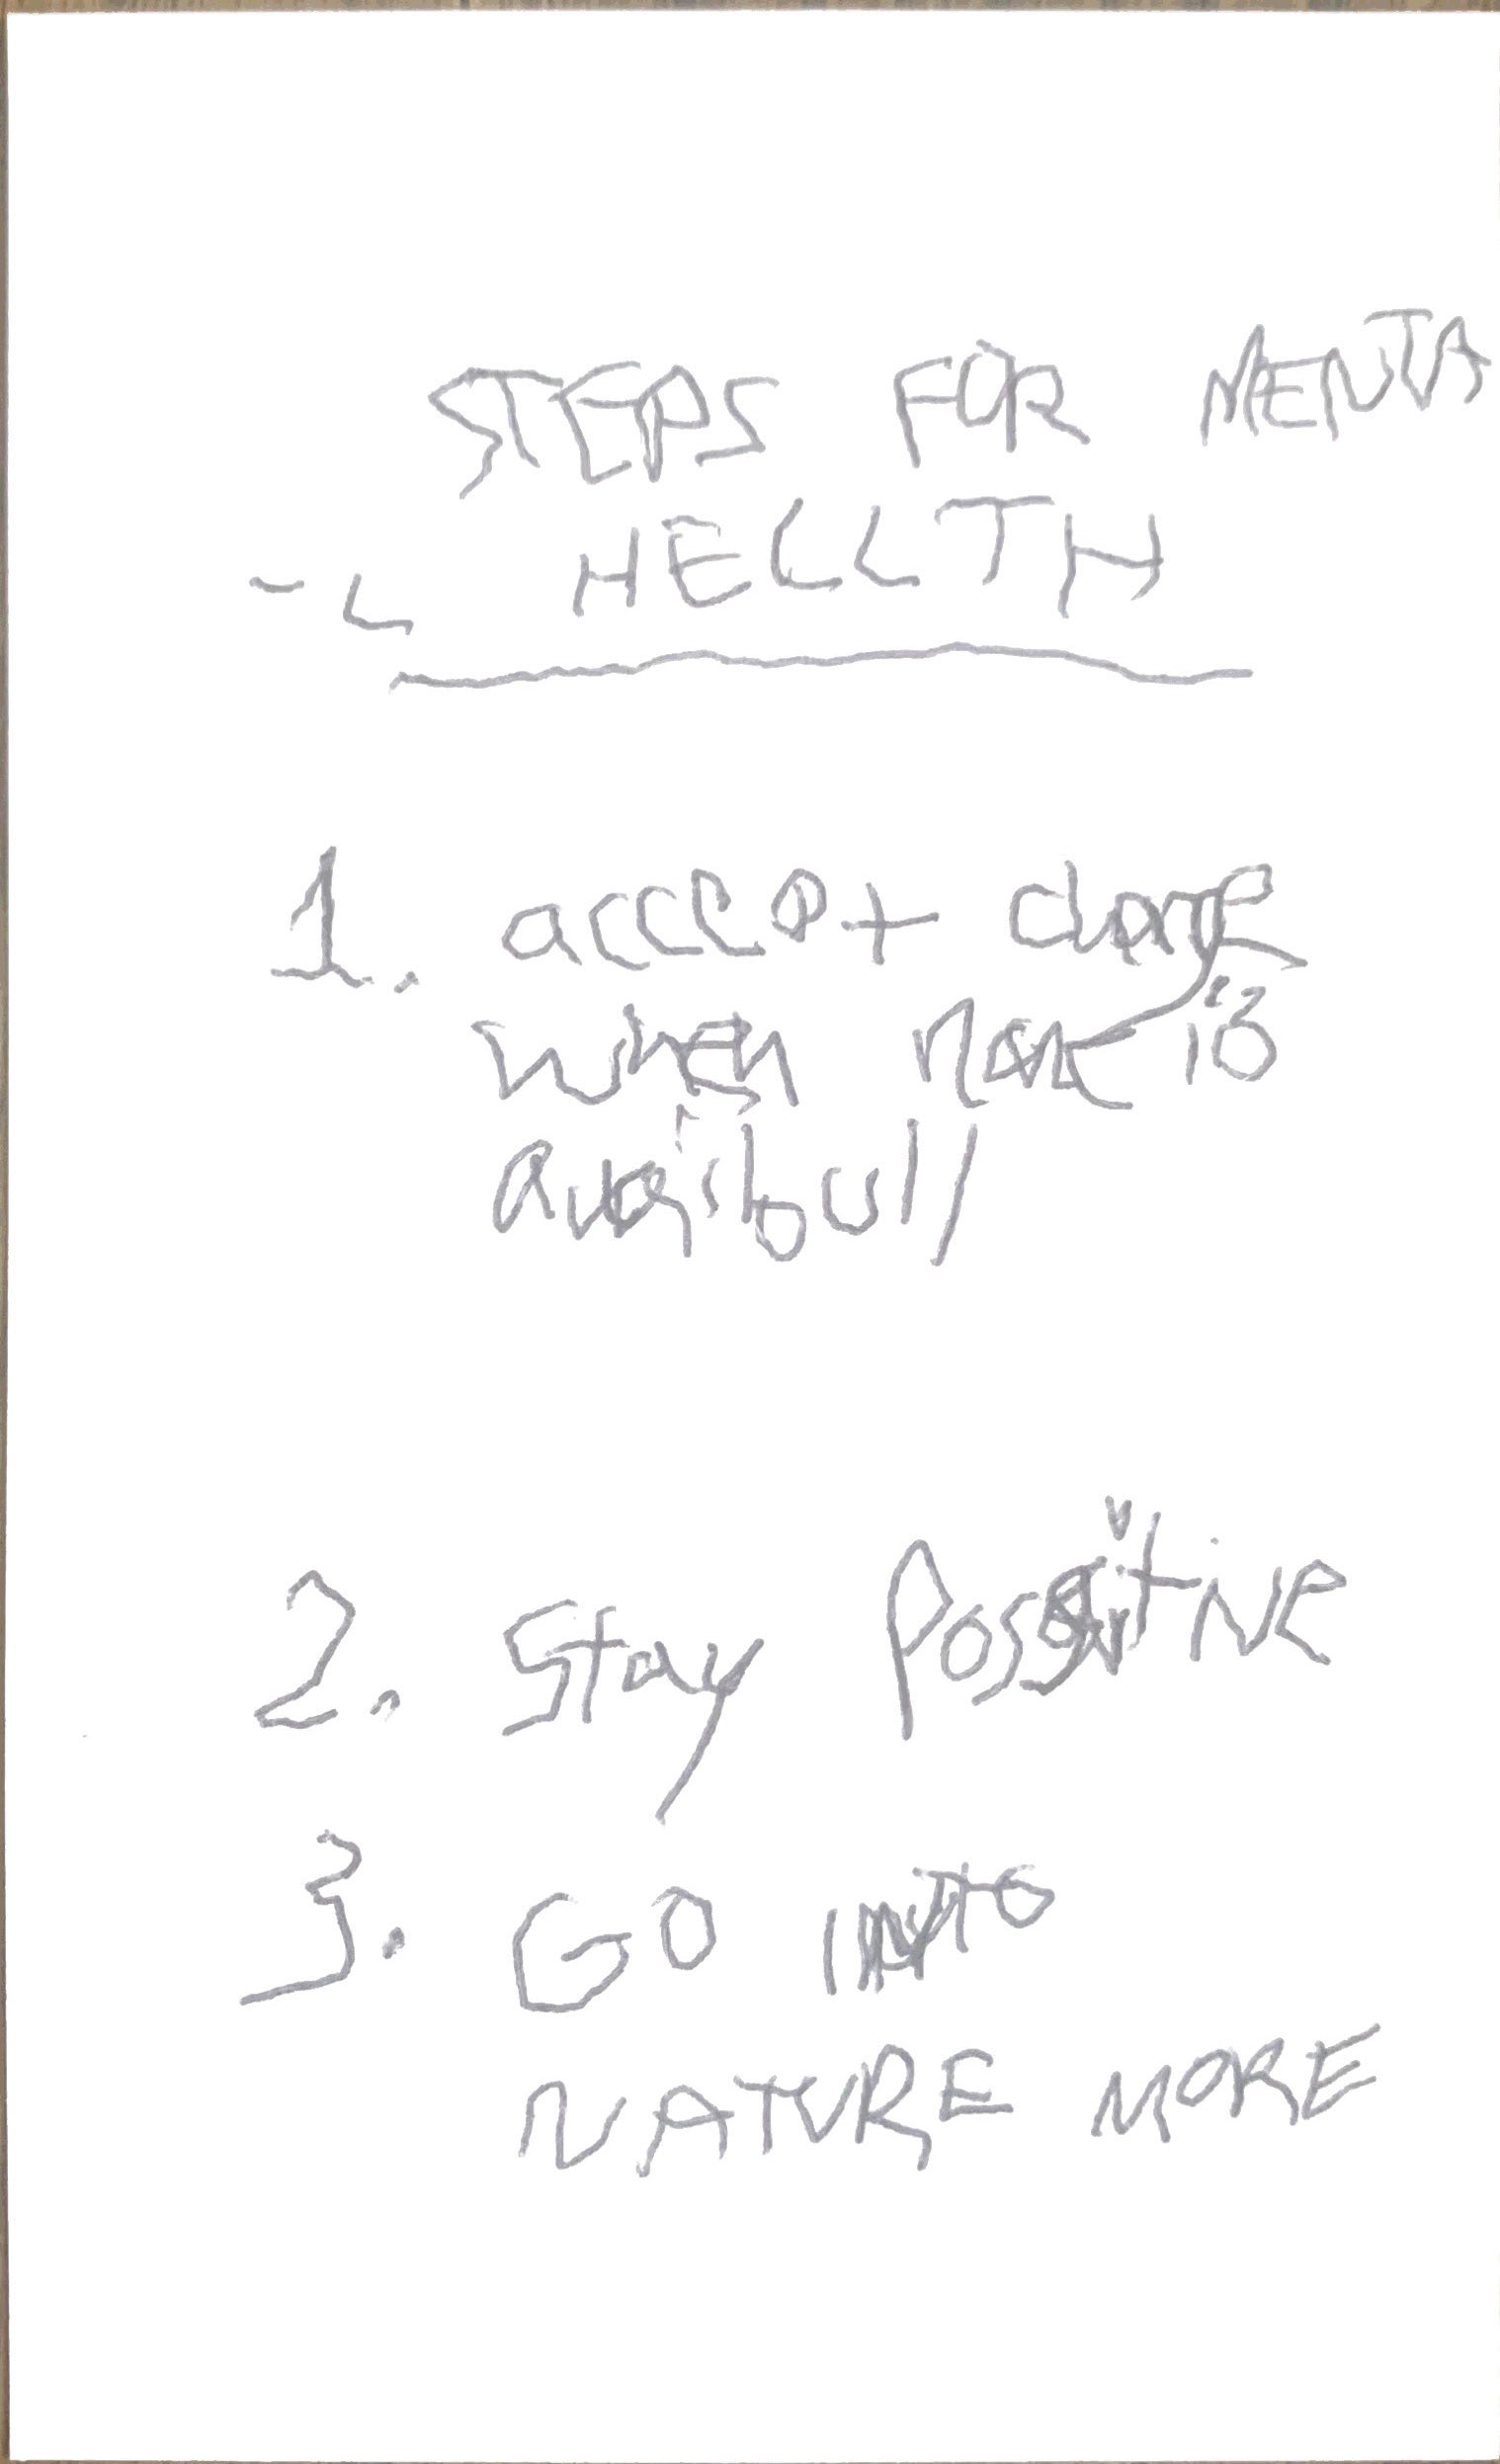 STEPS FOR MENTA
-L HELLTH
1. accept change
when none is
avasibull
2. Stay Possitive
3. GO INTO
NATURE MORE